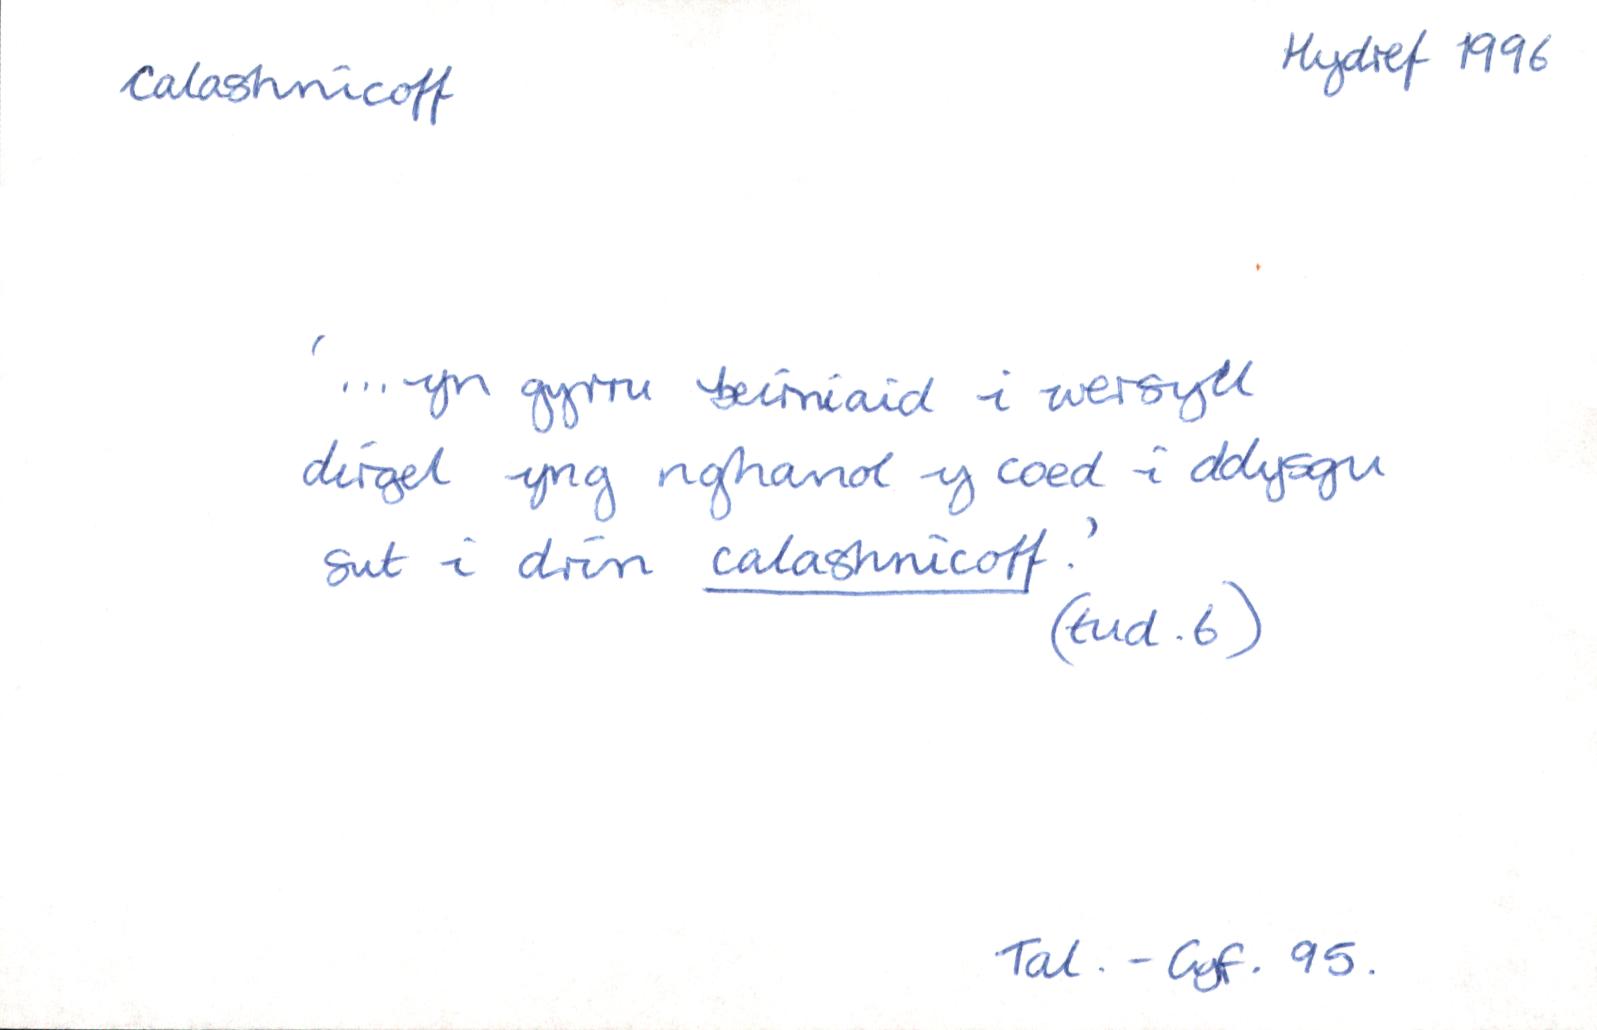 Calashnicoff
Hydref 1996
'...yn gyrru beirniaid i wersyll
dirgel yng nghanol y coed i ddysgu
sut i drin calashnicoff.'
(tud. 6)
Tal. - Cyf. 95.